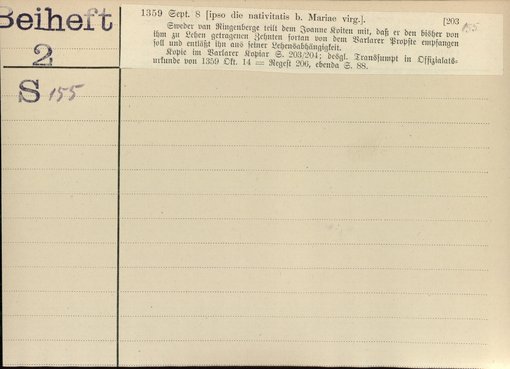 Beiheft
2
S 155
1359 Sept. 8 [ipso die nativitatis b. Mariae virg.]. [203
155
Sweder van Ringenberge teilt dem Joanne Koiten mit, daß er den bisher von
ihm zu Lehen getragenen Zehnten fortan von dem Varlarer Propste empfangen
soll und entläßt ihn aus seiner Lehensabhängigkeit.
Kopie im Varlarer Kopiar S. 203/204; desgl. Transsumpt in Offizialats-
urkunde von 1359 Okt. 14 = Regest 206, ebenda S. 88.